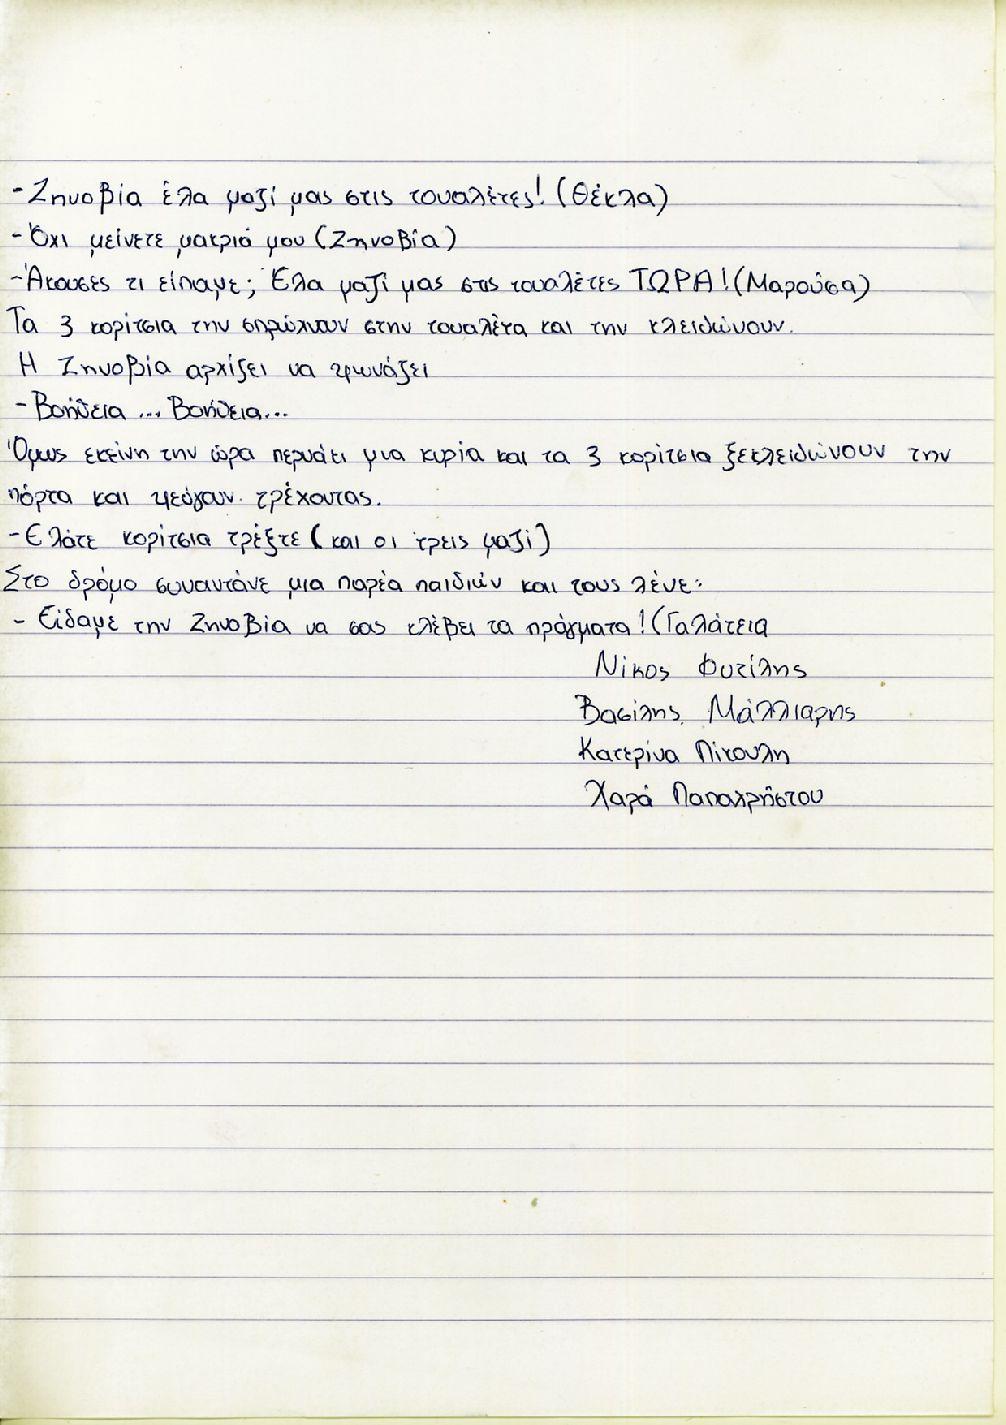 -Ζηνοβία έλα μαζί μας στις τουαλέτες! (Θέκλα)
-Όχι μείνετε μακριά μου (Ζηνοβία)
-Άκουσες τι είπαμε; Έλα μαζί μας στις τουαλέτες ΤΩΡΑ! (Μαρούσα)
Τα 3 κορίτσια την σπρώχνουν στην τουαλέτα και την κλειδώνουν.
Η Ζηνοβία αρχίζει να φωνάζει
-Βοήθεια... Βοήθεια...
Όμως εκείνη την ώρα περνάει μια κυρία και τα 3 κορίτσια ξεκλειδώνουν την
πόρτα και φεύγουν τρέχοντας.
-Ελάτε κορίτσια τρέξτε (και οι τρεις μαζί)
Στο δρόμο συναντάνε μια παρέα παιδιών και τους λένε:
- Είδαμε την Ζηνοβία να σας κλέβει τα πράγματα! (Γαλάτεια
Νίκος Φυτίλης
Βασίλης Μάλλιαρης
Κατερίνα Πίκουλη
Χαρά Παπαχρήστου